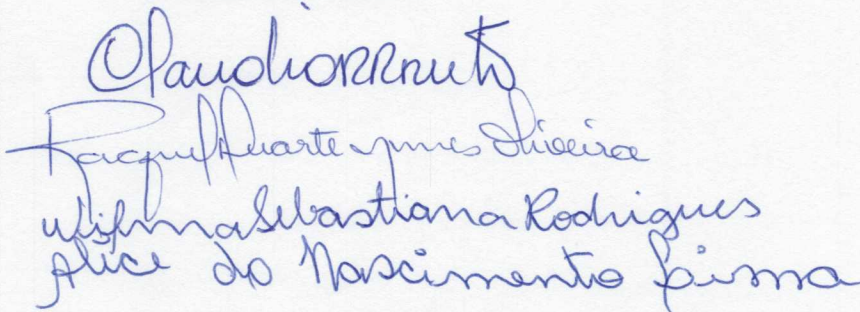 Claudio
Raquel Duarte Oliveira
Wilma Sebastiana Rodrigues
Alice do Nascimento